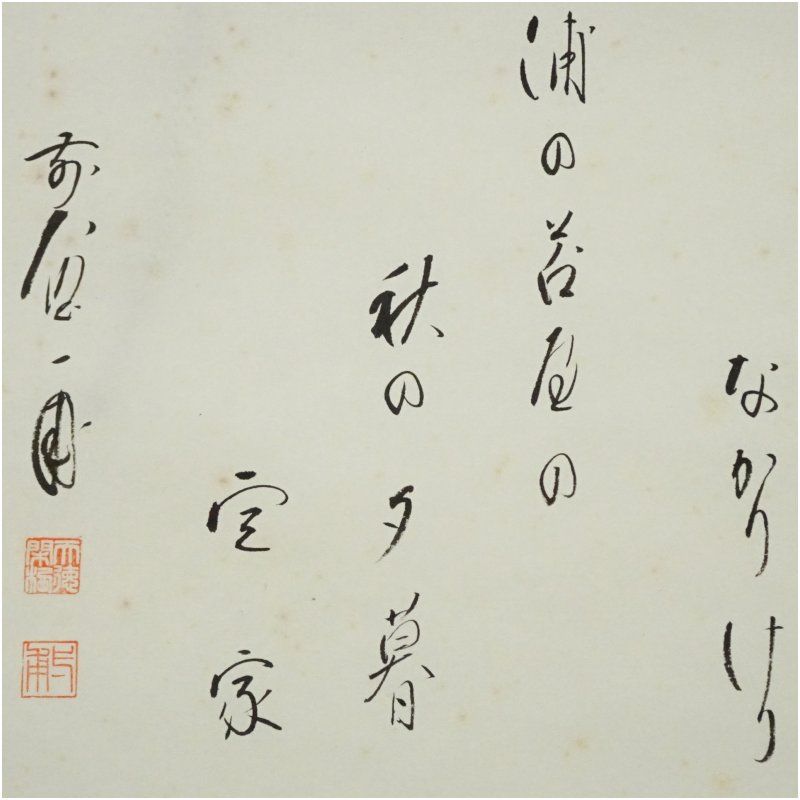 なかりけり
浦の苫屋の
秋の夕暮
定家